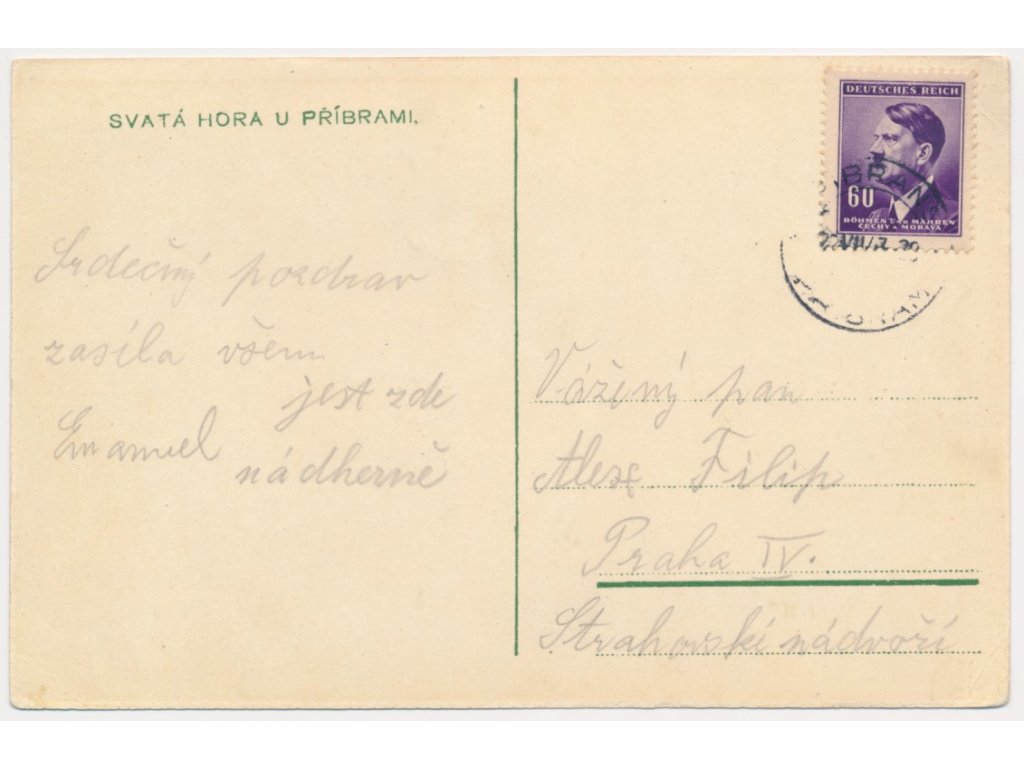 SVATÁ HORA U PŘÍBRAMI.
Srdečný pozdrav
zasíla všem
jest zde
Emanuel
nádherně
DEUTSCHES REICH
60
BÖHMEN UND MÄHREN
ČECHY A MORAVA
Vážený pan
Alex Filip
Praha IV.
Strahovskí nádvoří